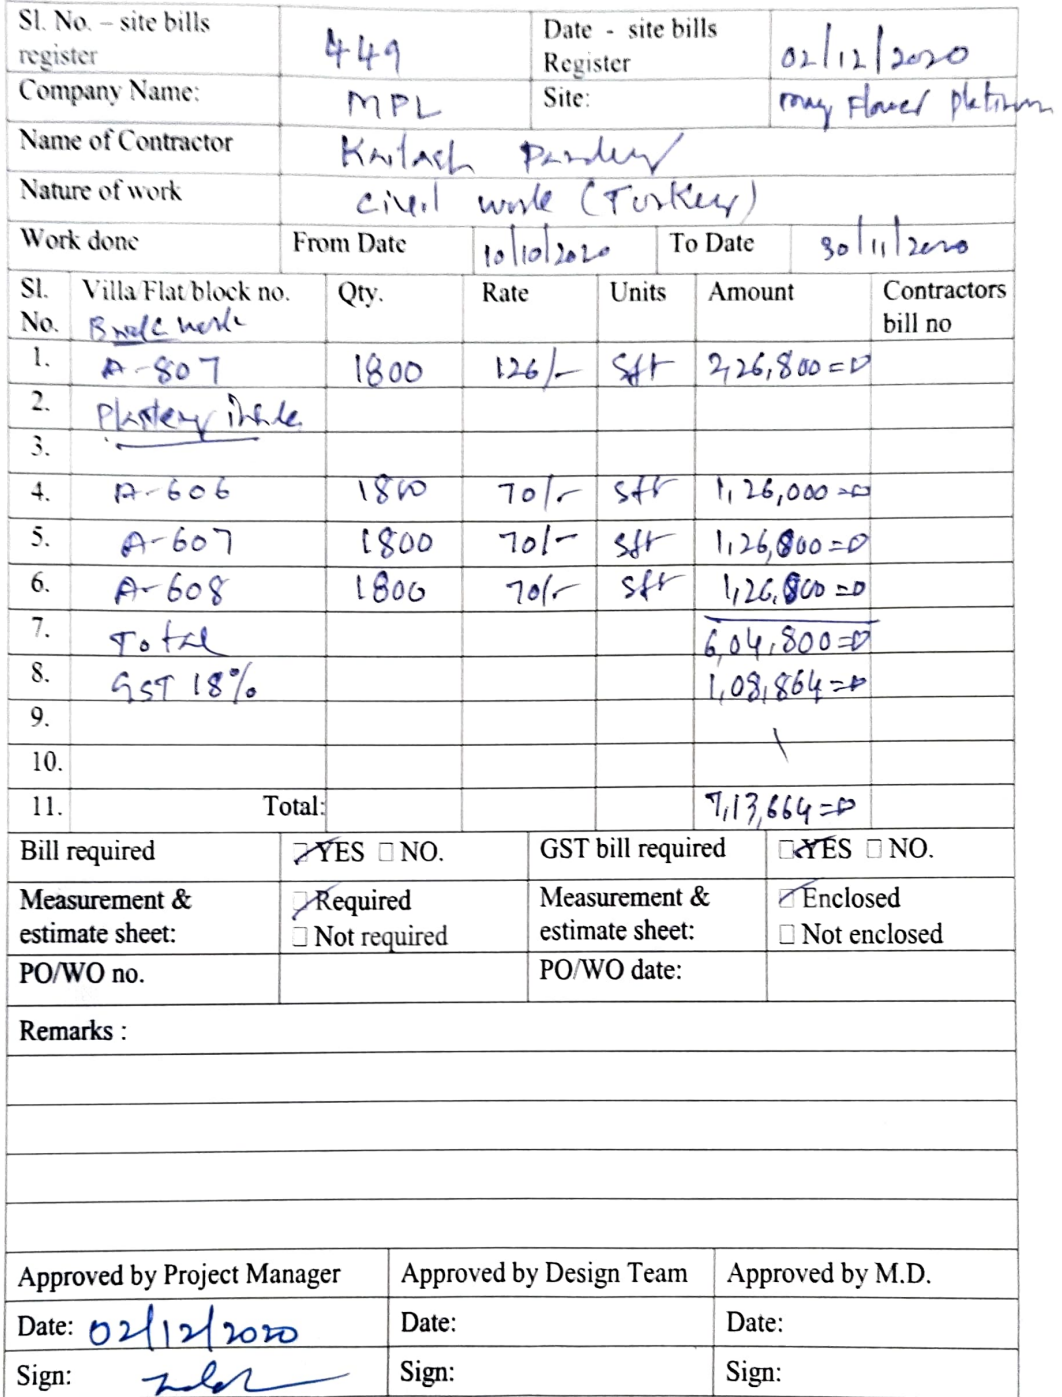 Sl. No. – site bills register 449 Date - site bills Register 02/12/2020
Company Name: MPL Site: may Flower platinum
Name of Contractor Kailash Pandey
Nature of work Civil work (Turkey)
Work done From Date 10/10/2020 To Date 30/11/2020
Sl. No. Villa/Flat/block no. Qty. Rate Units Amount Contractors bill no
Brick work
1. A-807 1800 126/- Sft 2,26,800=0
2. Plastery inside
3.
4. A-606 1800 70/- Sft 1,26,000=0
5. A-607 1800 70/- Sft 1,26,000=0
6. A-608 1800 70/- Sft 1,26,000=0
7. Total 6,04,800=0
8. GST 18% 1,08,864=0
9.
10.
11. Total: 7,13,664=0
Bill required YES NO. GST bill required YES NO.
Measurement & estimate sheet: Required Not required Measurement & estimate sheet: Enclosed Not enclosed
PO/WO no. PO/WO date:
Remarks :
Approved by Project Manager Approved by Design Team Approved by M.D.
Date: 02/12/2020 Date: Date:
Sign: Sign: Sign: